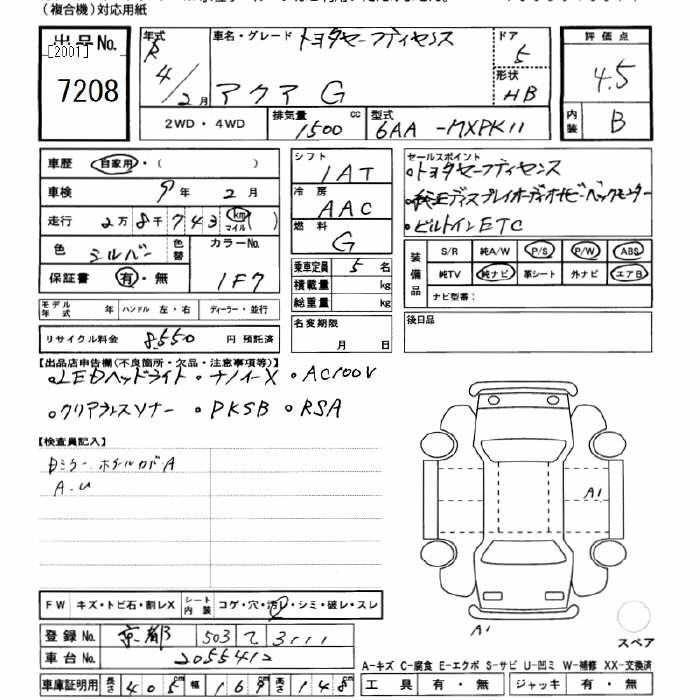 (複合機)対応用紙
出品No.
[2001]
7208
年式 R 4/2月
車名・グレード トヨタセーフティセンス
アクア G
ドア 5
形状 HB
評価点
4.5
内装 B
2WD・4WD
排気量 1500 cc
型式 6AA-MXPK11
車歴 自家用・( )
車検 9年 2月
走行 2万8千743 km マイル ( )
色 シルバー 色替
カラーNo. 1F7
保証書 有・無
モデル年式 年 ハンドル 左・右 ディーラー・並行
リサイクル料金 8550 円 預託済
シフト IAT
冷房 AAC
燃料 G
乗車定員 5名
積載量 kg
総重量 kg
名変期限
月 日
セールスポイント
・トヨタセーフティセンス
・純正ディスプレイオーディオナビ・バックモニター
・ビルトインETC
装備品
S/R 純A/W P/S P/W ABS
純TV 純ナビ 革シート 外ナビ エアB
ナビ型番:
後日品
【出品店申告欄(不良箇所・欠品・注意事項等)】
・LEDヘッドライト・ナノイーX ・AC100V
・クリアランスソナー ・PKSB ・RSA
【検査員記入】
A.U
A1
A1
FW キズ・トビ石・割レX シート内装 コゲ・穴・汚レ・シミ・破レ・スレ
登録No. 京都 503 て 3111
車台No. 2055412
車庫証明用 長さ 405cm 幅 169cm 高さ 148cm
スペア
A-キズ C-腐食 E-エクボ S-サビ U-凹ミ W-補修 XX-交換済
工具 有・無 ジャッキ 有・無